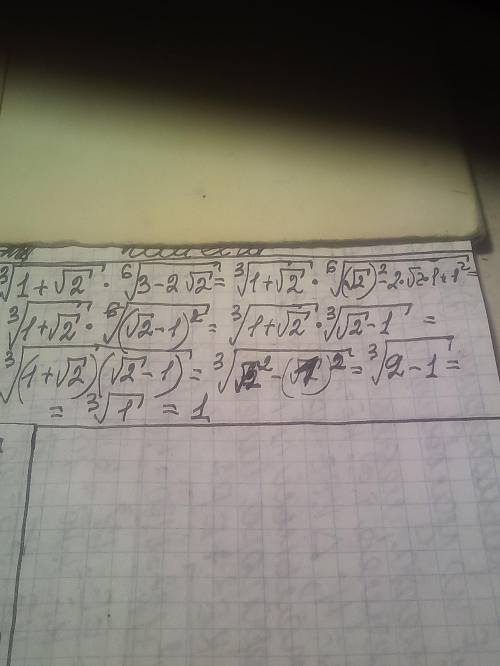 ∛(1+√2) · ⁶√(3-2√2) = ∛(1+√2) · ⁶√((√2)²-2·√2·1+1²) =
∛(1+√2) · ⁶√((√2-1)²) = ∛(1+√2) · ∛(√2-1) =
∛((1+√2)(√2-1)) = ∛(√2²-(1)²) = ∛(2-1) =
= ∛1 = 1